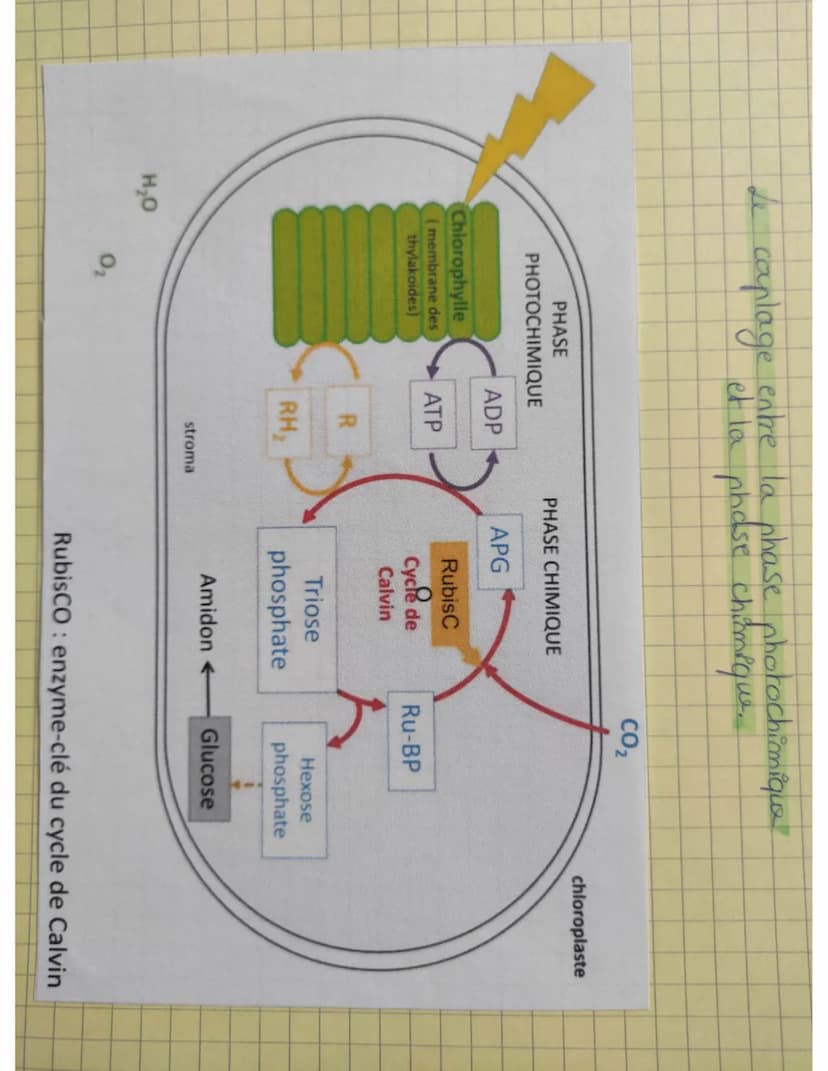 Le couplage entre la phase photochimique
et la phase chimique.
CO₂
chloroplaste
PHASE
PHOTOCHIMIQUE
PHASE CHIMIQUE
Chlorophylle
( membrane des
thylakoïdes)
ADP
ATP
R
RH₂
APG
RubisC
O
Cycle de
Calvin
Ru-BP
Triose
phosphate
Hexose
phosphate
Amidon
Glucose
stroma
H₂O
O₂
RubisCO : enzyme-clé du cycle de Calvin